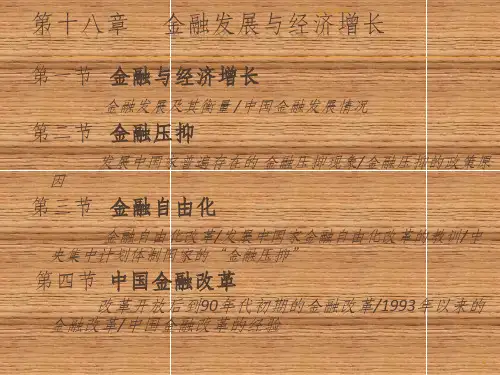 第十八章 金融发展与经济增长
第一节 金融与经济增长
金融发展及其衡量/中国金融发展情况
第二节 金融压抑
发展中国家普遍存在的金融压抑现象/金融压抑的政策原
因
第三节 金融自由化
金融自由化改革/发展中国家金融自由化改革的教训/中
央集中计划体制国家的“金融压抑”
第四节 中国金融改革
改革开放后到90年代初期的金融改革/1993年以来的
金融改革/中国金融改革的经验